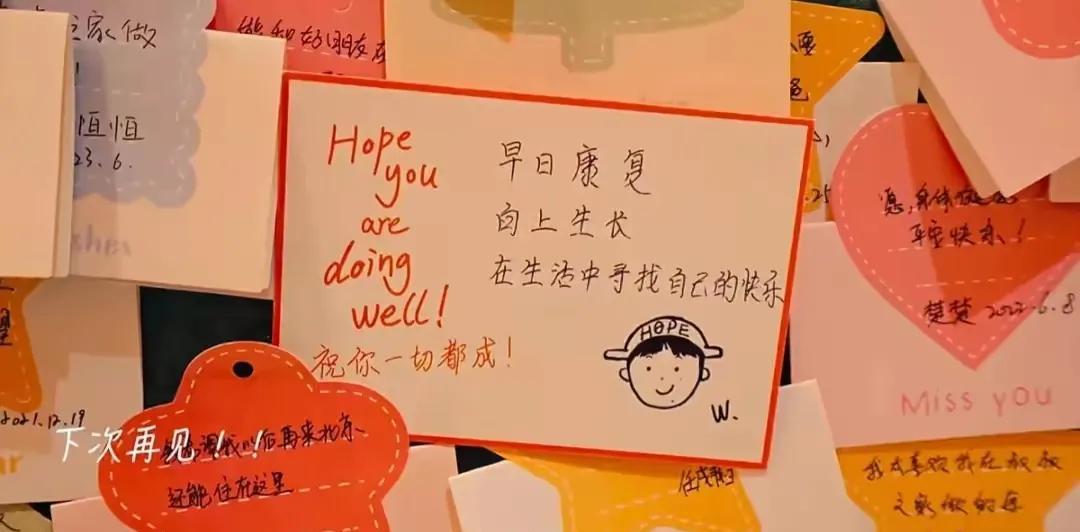 之家做
能和好朋友在
恒恒
23.6.
Hope
you
are
doing
well!
祝你一切都成!
早日康复
向上生长
在生活中寻找自己的快乐
HOPE
W.
.25
愿,身体
平安快乐!
楚楚 2022.6.8
Miss you
2021.12.19
下次再见!!
我以后再来北京、
还能住在这里
我喜欢我在
之家做的